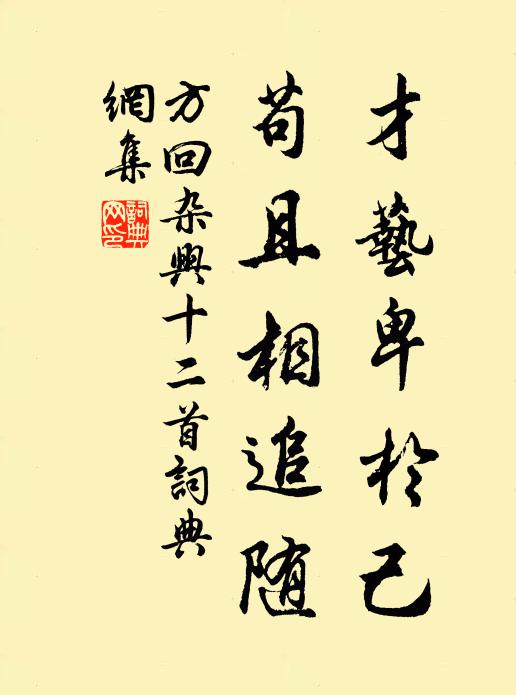 才藝卑於己
苟且相追随
方回杂興十二首詞典
網集
詞典网印